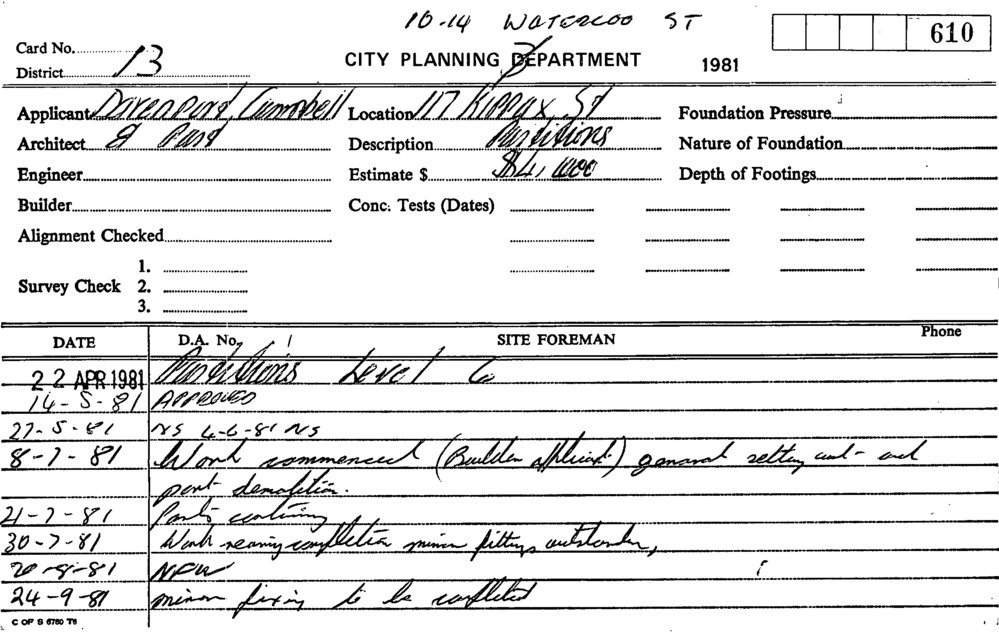 10-14 WATERLOO ST
610
Card No.
District 13
CITY PLANNING DEPARTMENT 1981
Applicant Davenport Campbell Location 117 Kippax St Foundation Pressure
Architect & Part Description Partitions Nature of Foundation
Engineer Estimate $ $41,000 Depth of Footings
Builder Conc. Tests (Dates)
Alignment Checked
1.
Survey Check 2.
3.
DATE D.A. No. SITE FOREMAN Phone
22 APR 1981 Partitions Level 6
14-5-81 APPROVED
27-5-81 NS 4-6-81 NS
8-7-81 Work commenced (Builder applicant) general setting out and
part demolition.
21-7-81 Parts continuing
30-7-81 Work nearing completion minor fittings outstanding
20-8-81 NFW
24-9-81 minor fixing to be completed
C OF S 6760 T6